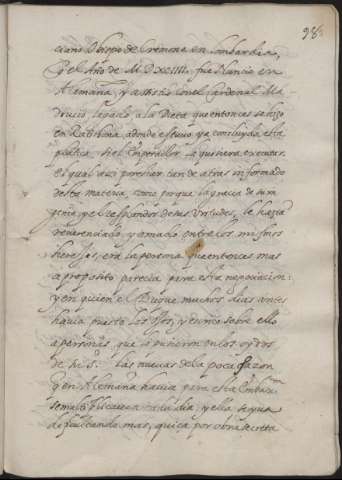 98
ciano Obispo de Cremona en Lombardia,
y el Año de M D XCIIII. fue Nuncio en
Alemaña, y assistio con el Cardenal Ma
drucio legado a la Dieta que entonces se hizo
en Ratisbona, adonde estuvo ya concluyda esta
platica si el Emperador la quisiera executar.
el qual por estar tan de atras informado
desta materia, como porque la gracia de su in
genio y el resplandor de sus virtudes, le hazia
reverenciado, y amado entre los mismos
herejes, era la persona que entonces mas
a proposito parecia para esta negociacion:
y en quien el Duque muchos dias antes
havia puesto los ojos, y escrito sobre ello
a personas, que lo pusieron en los oydos
de su S.^d Las nuevas de la poca sazon
q̃ en Alemaña havia para esta Embax.^da
se multiplicavan cada dia, y ella se yva
dificultando mas, quiça por obra secreta